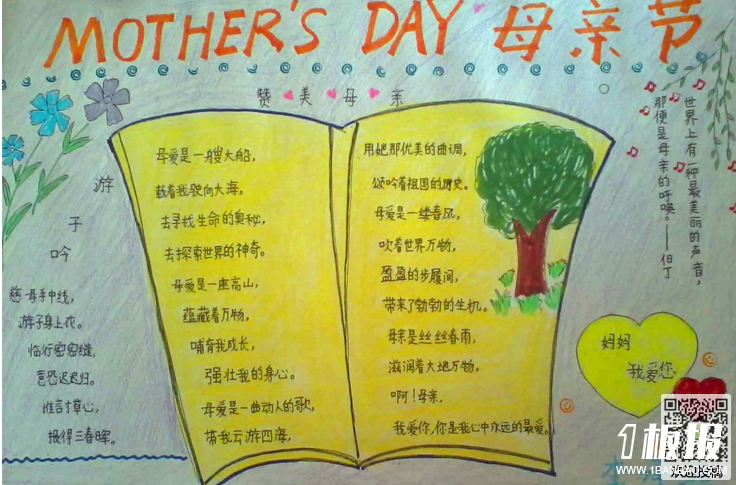 MOTHER'S DAY 母亲节
赞美母亲
游子吟
慈母手中线,
游子身上衣。
临行密密缝,
意恐迟迟归。
惟言寸草心,
报得三春晖。
母爱是一艘大船,
载着我驶向大海,
去寻找生命的奥秘,
去探索世界的神奇。
母爱是一座高山,
蕴藏着万物,
哺育我成长,
强壮我的身心。
母爱是一曲动人的歌,
带我云游四海,
用她那优美的曲调,
颂吟着祖国的历史。
母爱是一缕春风,
吹着世界万物,
盈盈的步履间,
带来了勃勃的生机。
母亲是丝丝春雨,
滋润着大地万物,
啊!母亲,
我爱你,你是我心中永远的最爱。
世界上有一种最美丽的声音,
那便是母亲的呼唤。——但丁
妈妈
我爱您
1板报
WWW.1BANBAO.COM
欢迎投稿